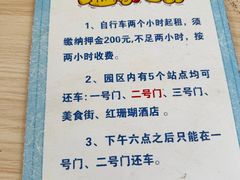 1、自行车两个小时起租，须
缴纳押金200元,不足两小时，按
两小时收费。
2、园区内有5个站点均可
还车:一号门、二号门、三号门、
美食街、红珊瑚酒店 。
3、下午六点之后只能在一
号门、二号门还车。